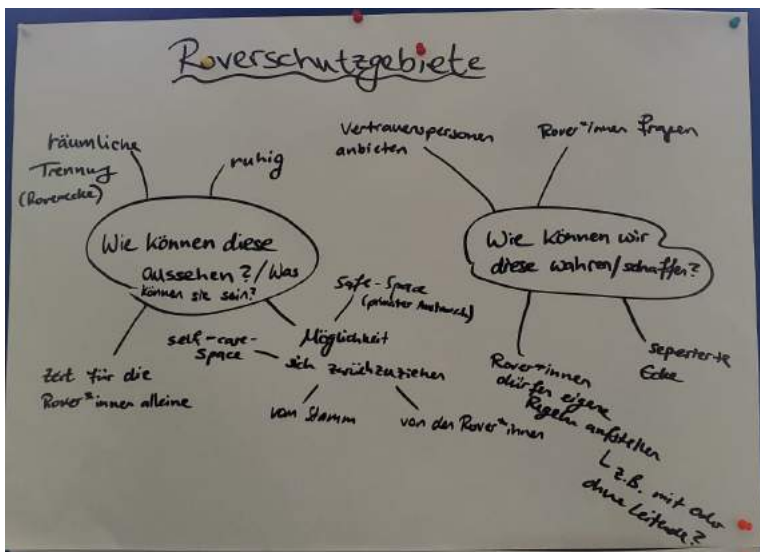 Roverschutzgebiete
räumliche
Trennung
(Roverecke)
ruhig
Wie können diese
aussehen?/Was
können sie sein?
Zeit für die
Rover*innen alleine
Möglichkeit
sich zurückzuziehen
Safe-Space
(privater Austausch)
self-care-
Space
vom Stamm
von den Rover*innen
Vertrauenspersonen
anbieten
Rover*innen fragen
Wie können wir
diese wahren/schaffen?
Rover*innen
dürfen eigene
Regeln aufstellen
z.B. mit oder
ohne Leitende?
seperierte
Ecke